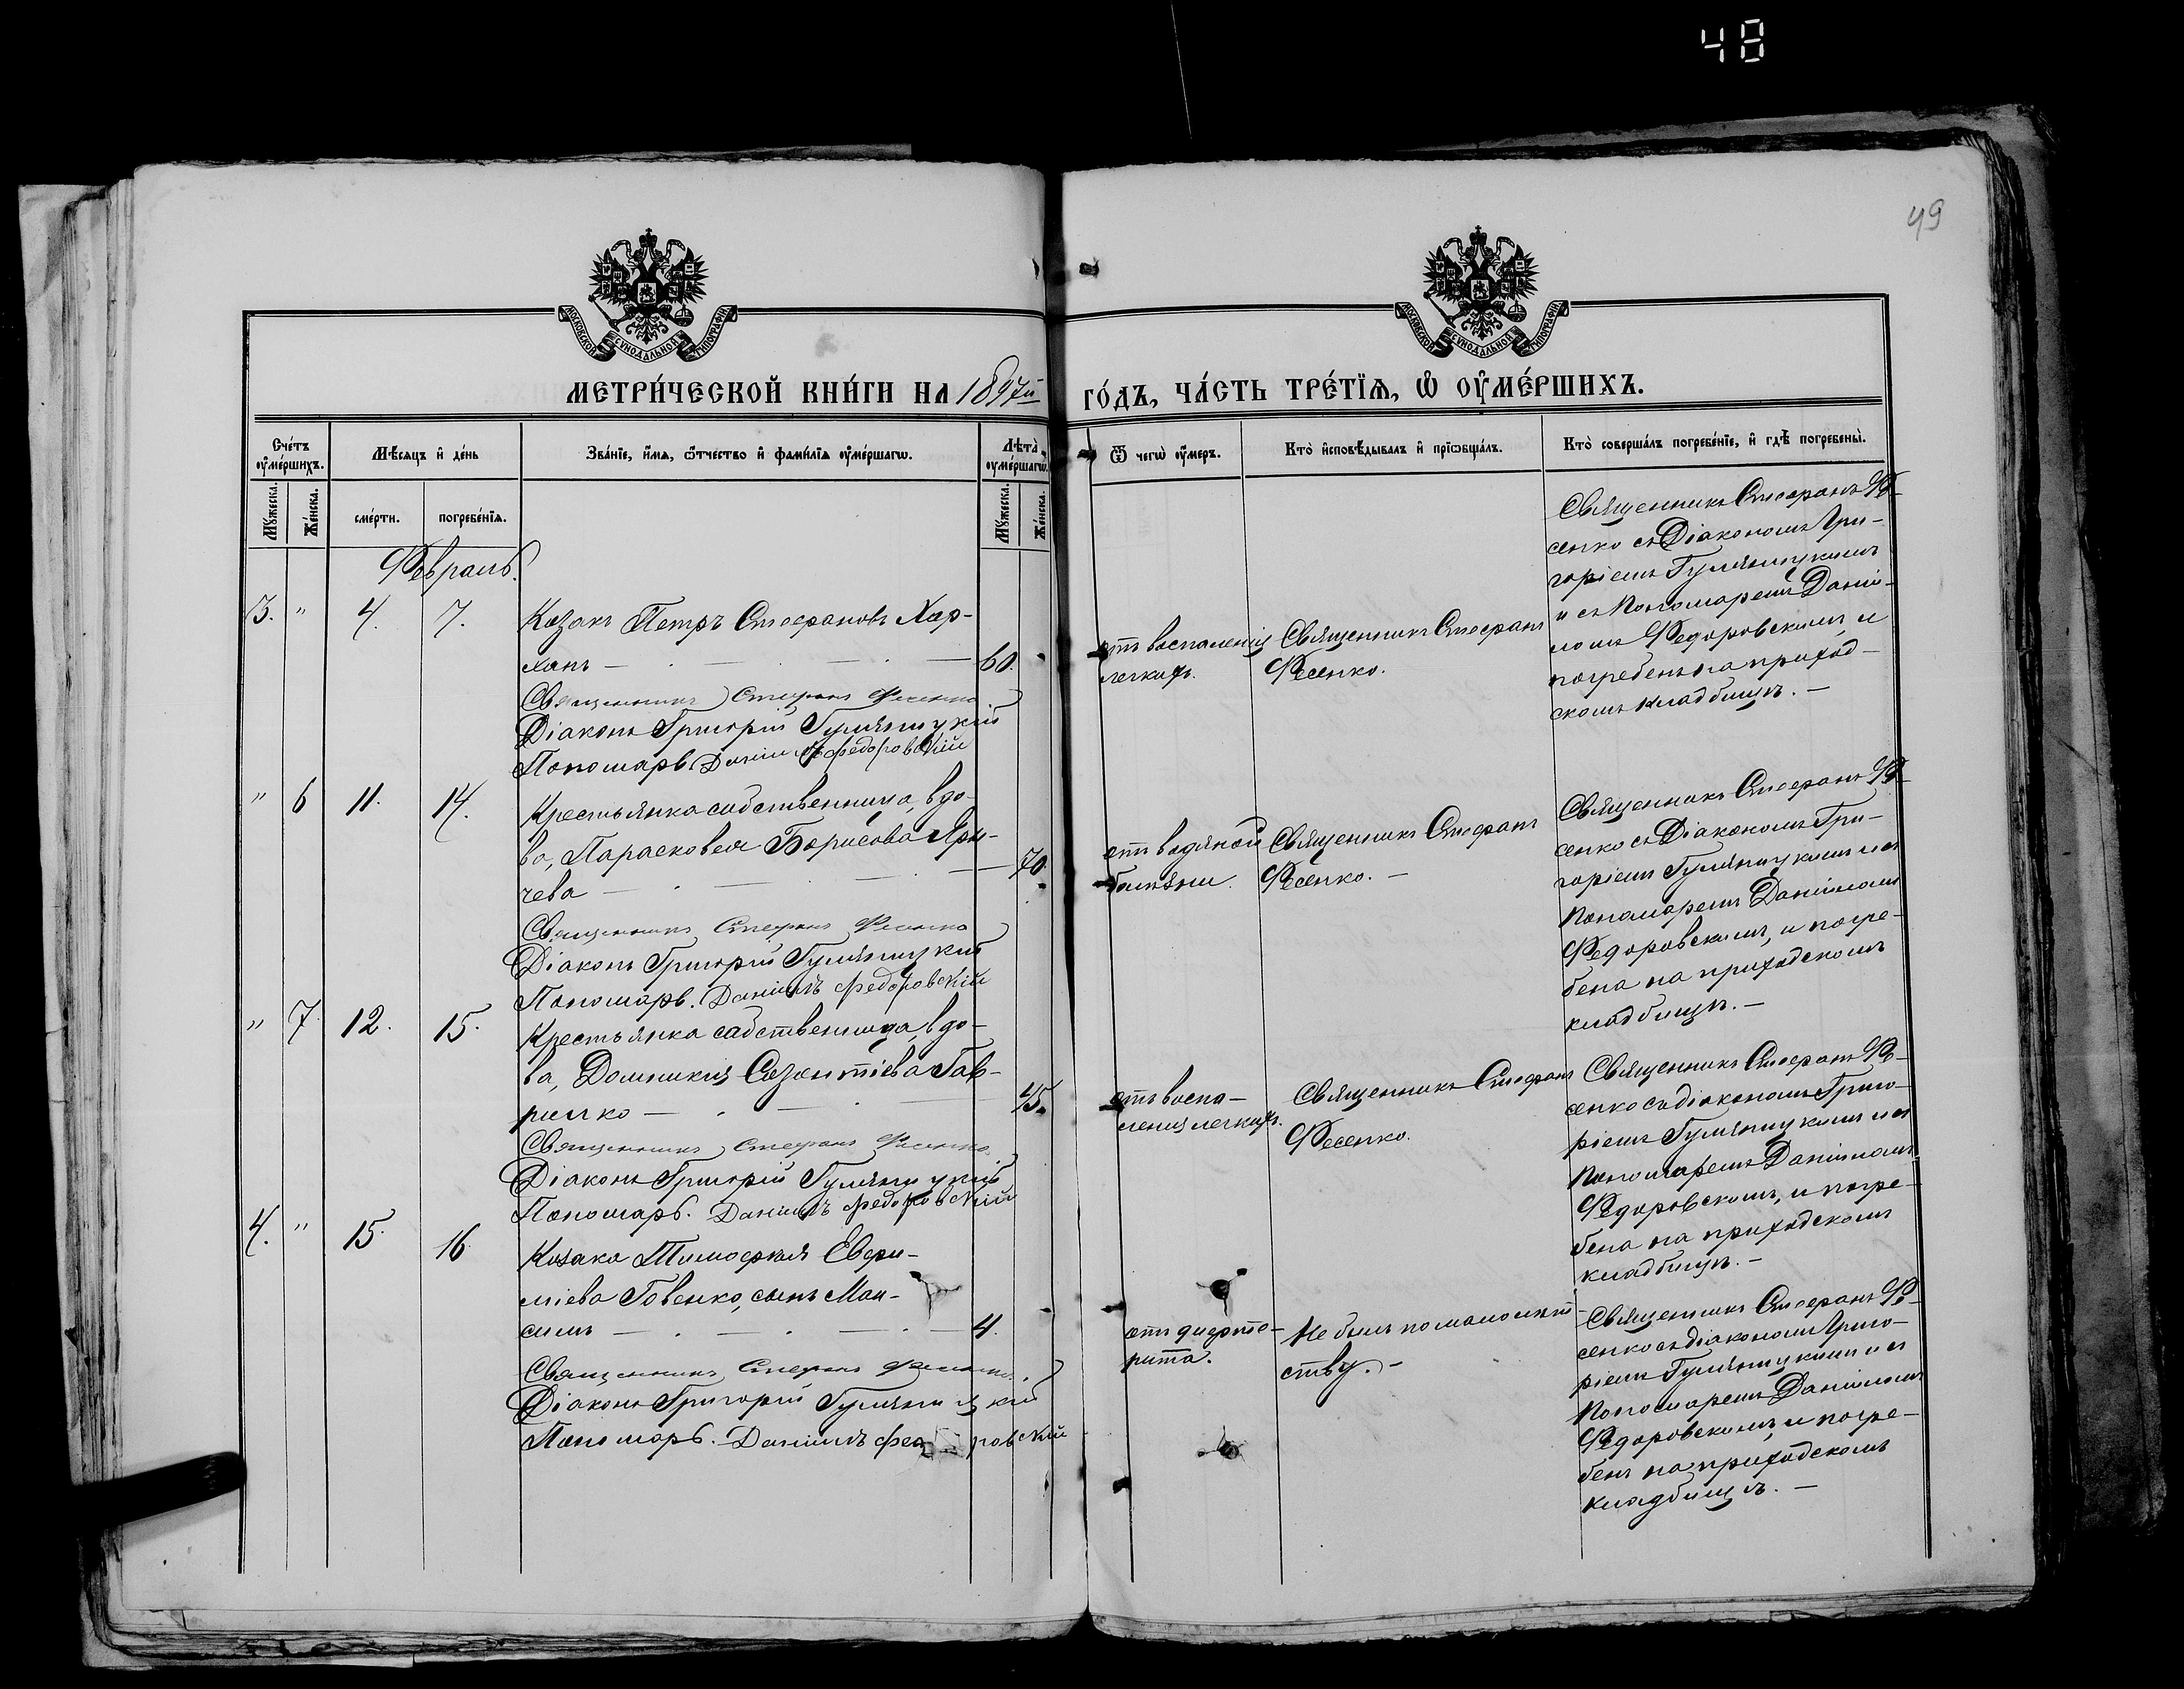 48
49
МОСКОВСКОЙ СѴНОДАЛЬНОЙ ТИПОГРАФІИ
МОСКОВСКОЙ СѴНОДАЛЬНОЙ ТИПОГРАФІИ
МЕТРИ́ЧЕСКОЙ КНИ́ГИ НА 1897й
ГО́ДЪ, ЧА́СТЬ ТРЕ́ТЇѦ, Ѡ҆ ОУ҆МЕ́РШИХЪ.
Сче́тъ
оу҆ме́ршихъ.
Мꙋ́жеска.
Же́нска.
Мѣ́сѧцъ и҆ де́нь
сме́рти.
погребе́нїѧ.
Зва́нїе, и҆́мѧ, ѻ҆́тчество и҆ фами́лїѧ оу҆ме́ршагѡ.
Лѣ́та
оу҆ме́ршагѡ.
Мꙋ́жеска.
Же́нска.
Ѿ чегѡ̀ оу҆́меръ.
Кто̀ и҆сповѣ́дывалъ и҆ прїѡбща́лъ.
Кто̀ соверша́лъ погребе́нїе, и҆ гдѣ̀ погребены̀.
Февраль.
3. " 4. 7.
Козакъ Петръ Стефановъ Хар-
ханъ — . — . — . —
60.
Священникъ Стефанъ Фесенко
Діаконъ Григорій Гуляницкій
Пономарь Даніилъ Федоровскій
отъ воспаленія
легкихъ.
Священникъ Стефанъ
Фесенко.
Священникъ Стефанъ Фе-
сенко съ Діакономъ Гри-
горіемъ Гуляницкимъ
и съ Пономаремъ Даніи-
ломъ Федоровскимъ, и
погребенъ на приход-
скомъ кладбищѣ. —
" 6 11. 14.
Крестьянка собственница, вдо-
ва, Парасковея Борисова
чева — . — . — . —
70.
Священникъ Стефанъ Фесенко
Діаконъ Григорій Гуляницкій
Пономарь. Даніилъ Федоровскій
отъ водяной
болѣзни.
Священникъ Стефанъ
Фесенко. —
Священникъ Стефанъ Фе-
сенко съ Діакономъ Гри-
горіемъ Гуляницкимъ и съ
Пономаремъ Даніиломъ
Федоровскимъ, и погре-
бена на приходскомъ
кладбищѣ. —
" 7. 12. 15.
Крестьянка собственница, вдо-
ва, Домникія Созонтіева Гав-
рилко — . — . —
45.
Священникъ Стефанъ Фесенко.
Діаконъ Григорій Гуляницкій
Пономарь. Даніилъ Федоровскій
отъ воспа-
ленія легкихъ.
Священникъ Стефанъ
Фесенко.
Священникъ Стефанъ Фе-
сенко съ діакономъ Григо-
ріемъ Гуляницкимъ и съ
Пономаремъ Даніиломъ
Федоровскимъ, и погре-
бена на приходскомъ
кладбищѣ. —
4. " 15. 16
Козака Тимофея Евфи-
міева Говенко, сынъ Мак-
симъ — . — . — . —
4.
Священникъ Стефанъ Фесенко.
Діаконъ Григорій Гуляницкій
Пономарь. Даніилъ Федоровскій
отъ дифте-
рита.
Не былъ по малолѣт-
ству. —
Священникъ Стефанъ Фе-
сенко съ діакономъ Григо-
ріемъ Гуляницкимъ и съ
Пономаремъ Даніиломъ
Федоровскимъ, и погре-
бенъ на приходскомъ
кладбищѣ. —